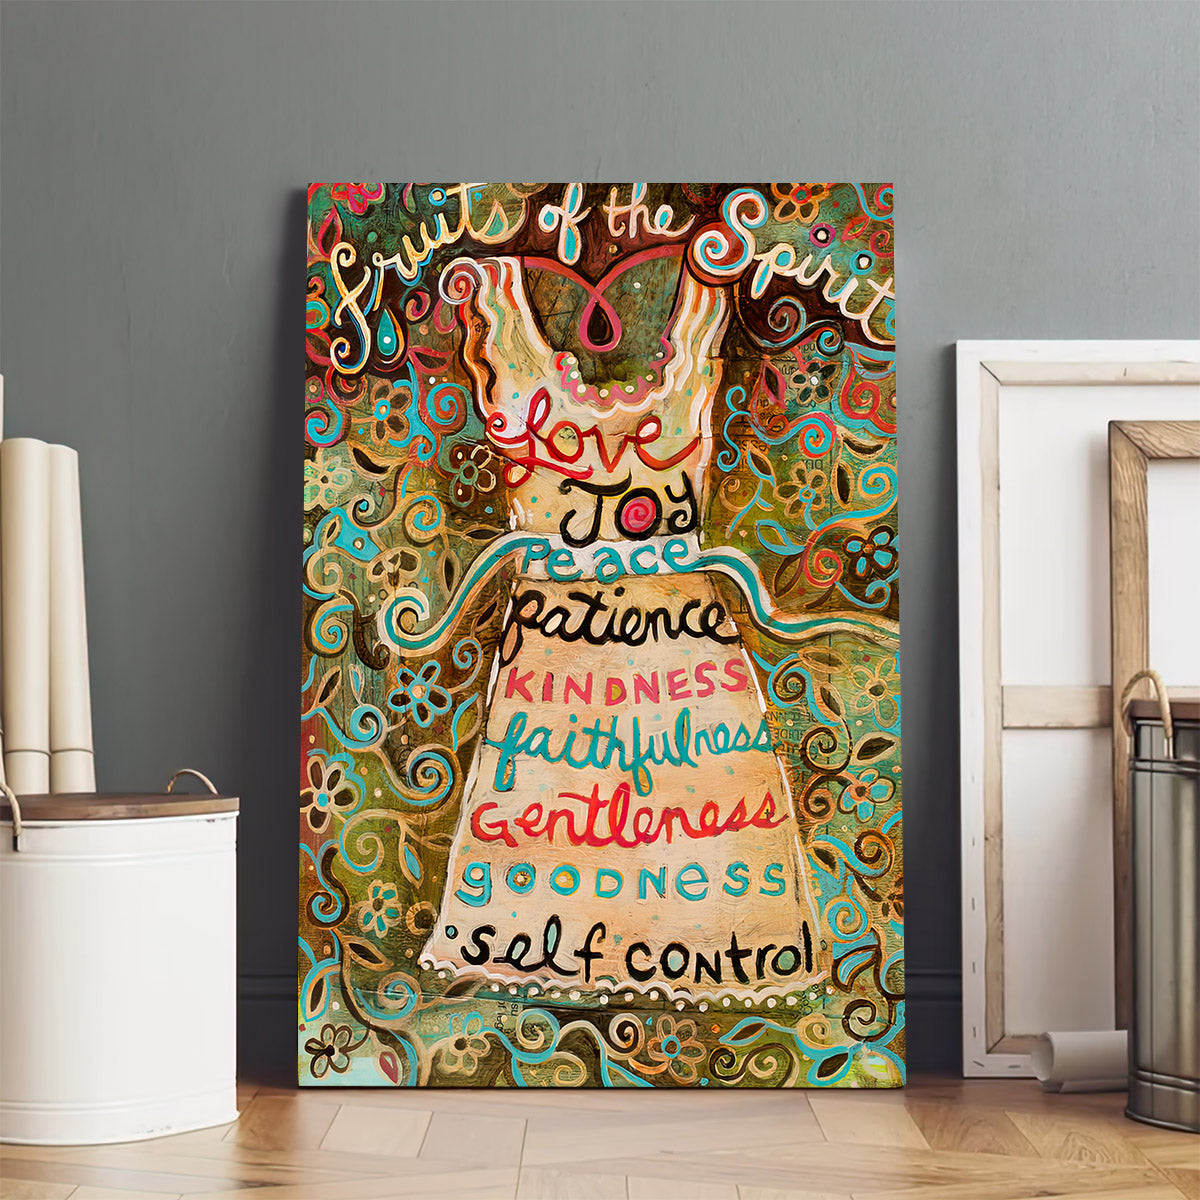 fruits of the Spirit
Love
Joy
Peace
patience
KINDNESS
faithfulness
Gentleness
gOODNESS
self control